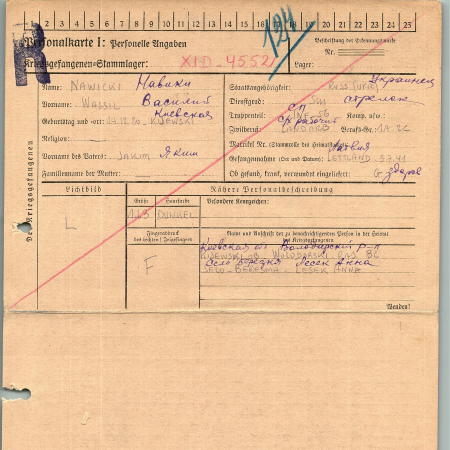 1 2 3 4 5 6 7 8 9 10 11 12 13 14 15 16 17 18 19 20 21 22 23 24 25
R
Personalkarte I: Personelle Angaben
Kriegsgefangenen-Stammlager: XID-4552
124
Beschriftung der Erkennungsmarke
Nr.
Lager:
Des Kriegsgefangenen
Name: NAWICKI Навики
Vorname: WASSIL Василий
Киевская
Geburtstag und -ort: KIJEWSKI
Religion:
Vorname des Vaters: JAKIM Яким
Familienname der Mutter:
Staatsangehörigkeit: Украинец
Dienstgrad: стрелок
Truppenteil: Komp. usw.:
Zivilberuf: LANDARB. Berufs-Gr.:
Matrikel Nr. (Stammrolle des Heimatstaates): Латвия
Gefangennahme (Ort und Datum): LETTLAND 3.7.41
Ob gesund, krank, verwundet eingeliefert: G здоров
Lichtbild
L
Nähere Personalbeschreibung
Größe Haarfarbe
DUNKEL
Besondere Kennzeichen:
Fingerabdruck
des rechten! Zeigefingers
F
Name und Anschrift der zu benachrichtigenden Person in der Heimat
des Kriegsgefangenen
Киевская об Володарский р-н
KIJEWSKI WOLODARSKI
Село Лесек Анна
SELO LESEK ANNA
Wenden!